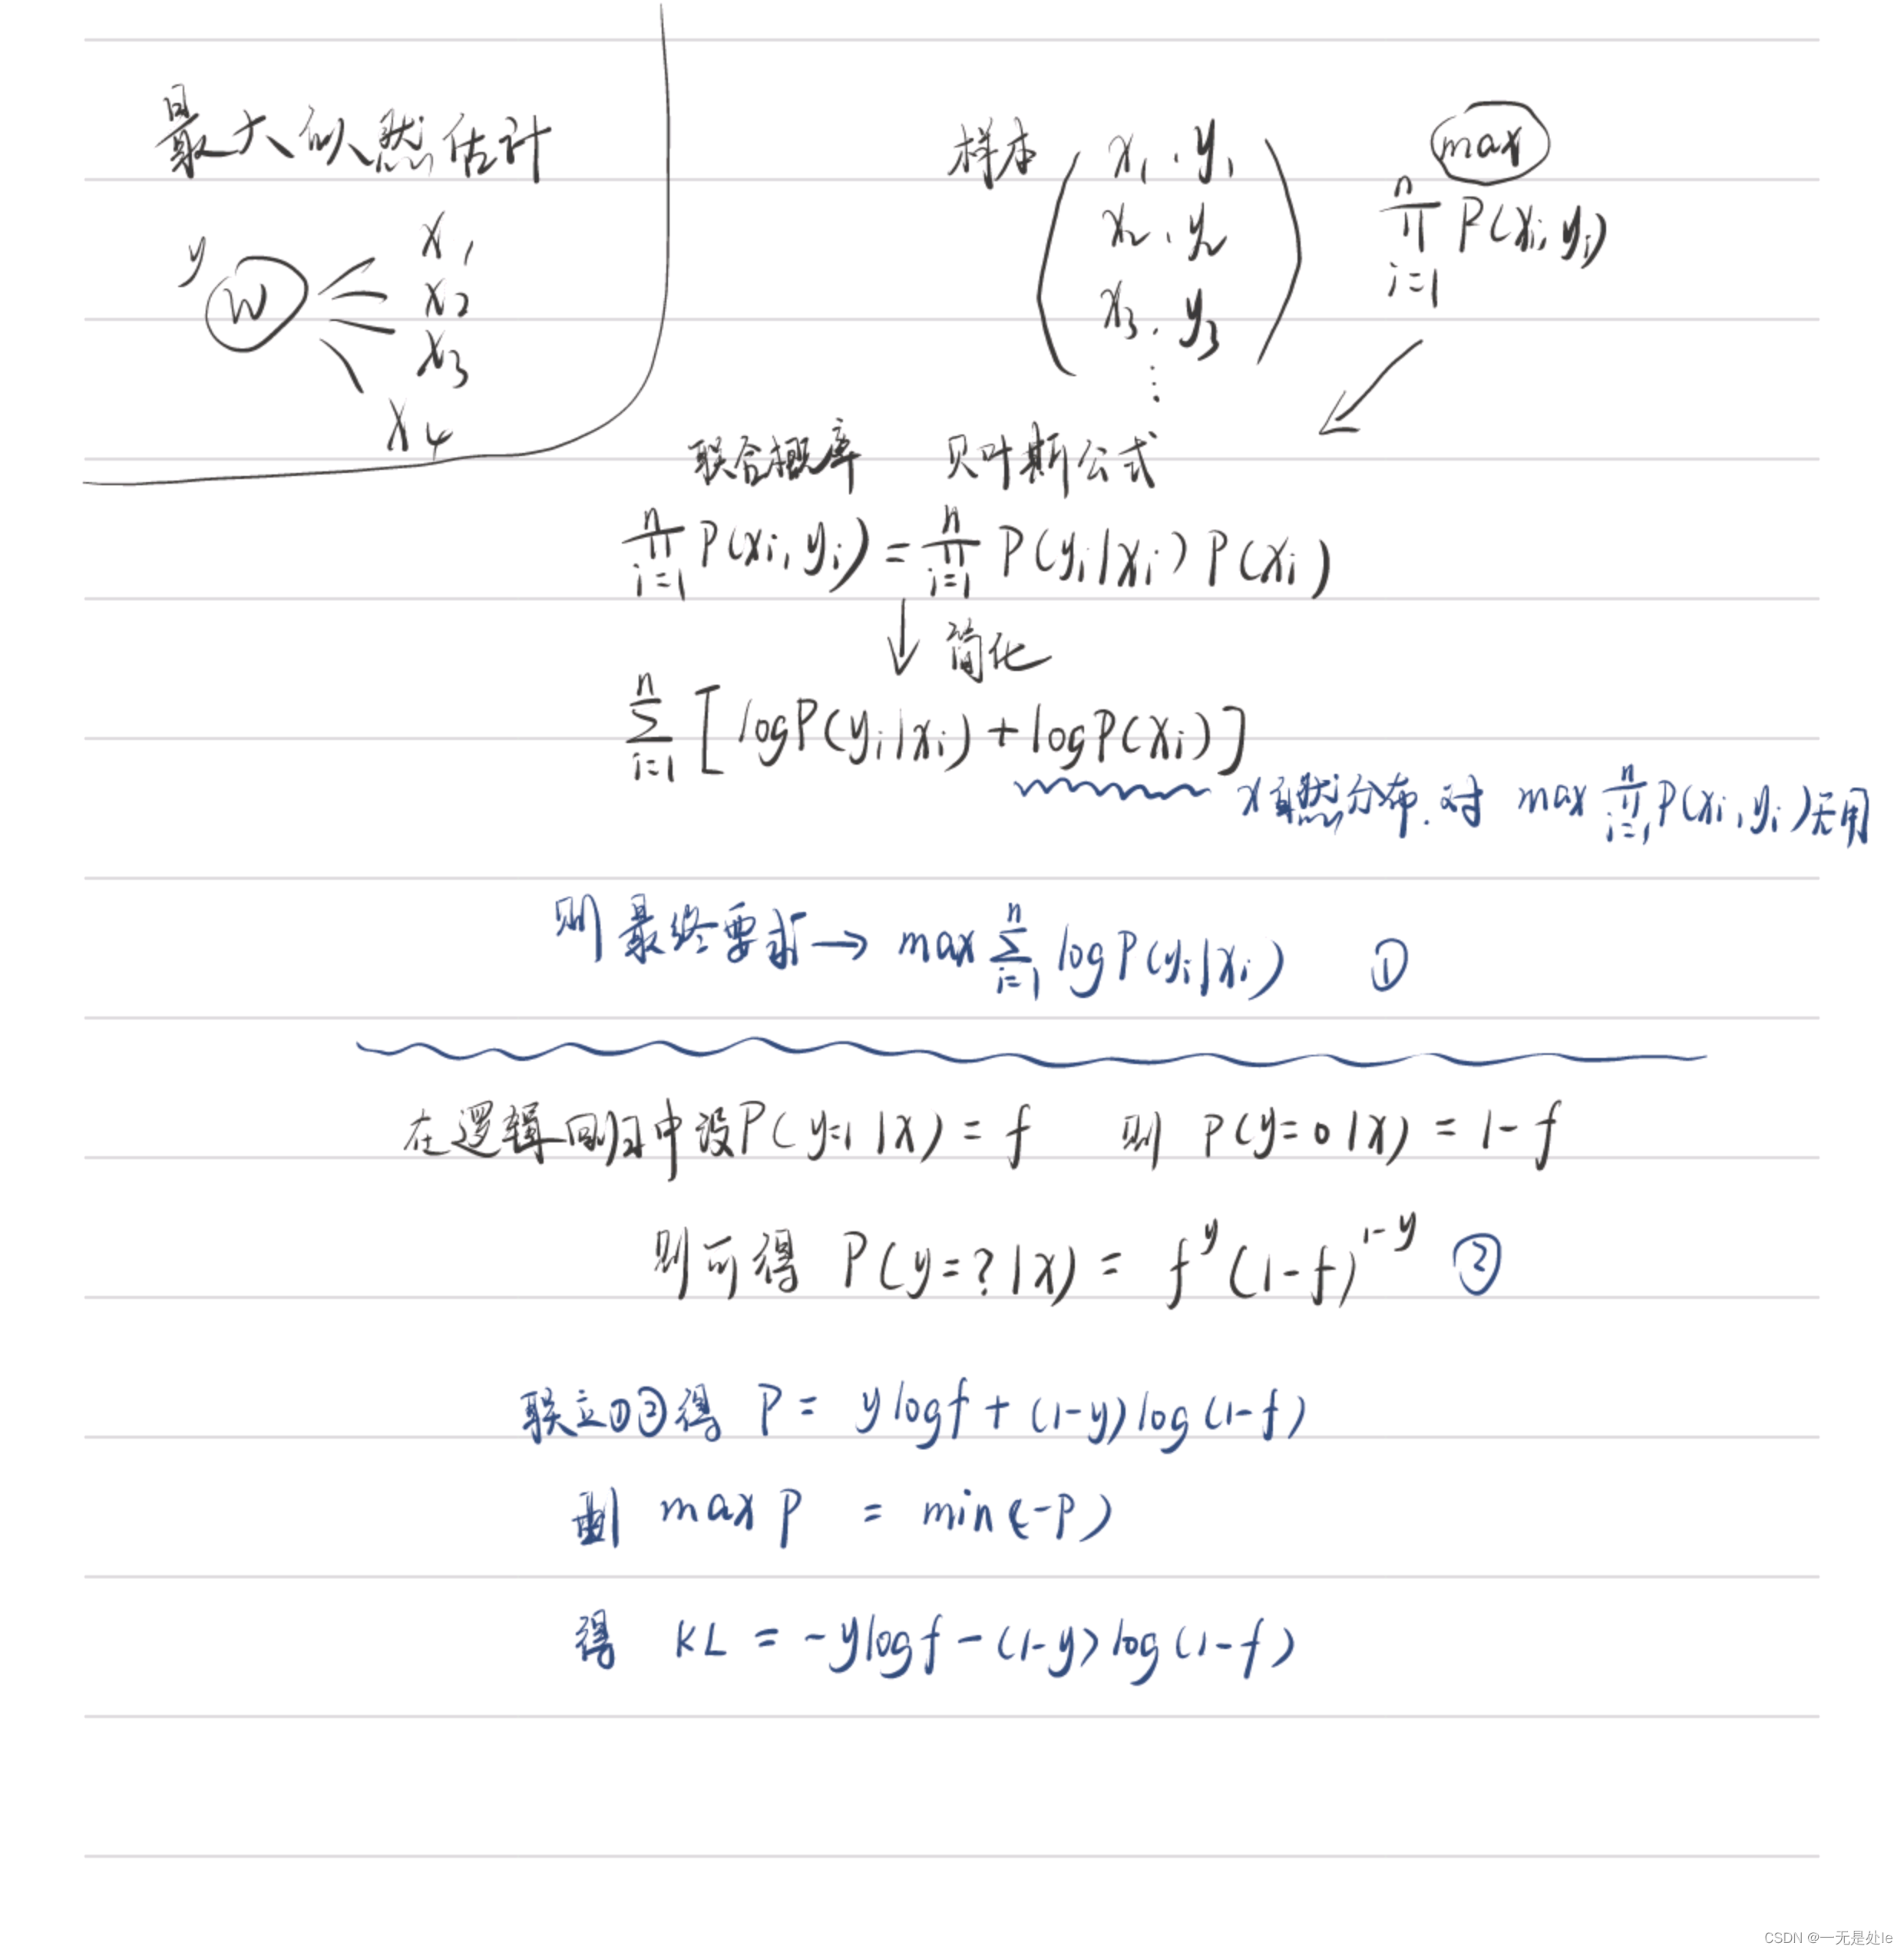 最大似然估计
y
w
x₁
x₂
x₃
x₄
样本
x₁, y₁
x₂, y₂
x₃, y₃
⋮
max
∏ⁿᵢ₌₁ P(xᵢ, yᵢ)
联合概率 贝叶斯公式
∏ⁿᵢ₌₁ P(xᵢ, yᵢ) = ∏ⁿᵢ₌₁ P(yᵢ|xᵢ) P(xᵢ)
↓ 简化
∑ⁿᵢ₌₁ [logP(yᵢ|xᵢ) + logP(xᵢ)]
x自然分布. 对 max ∏ⁿᵢ₌₁ P(xᵢ, yᵢ) 无用
则最终要求 → max ∑ⁿᵢ₌₁ logP(yᵢ|xᵢ) ①
在逻辑回归中设P(y=1|x) = f 则 P(y=0|x) = 1-f
则可得 P(y=?|x) = f^y (1-f)^(1-y) ②
联立①②得 P = ylogf + (1-y)log(1-f)
max P = min(-P)
得 KL = -ylogf - (1-y)log(1-f)
CSDN @一无是处le